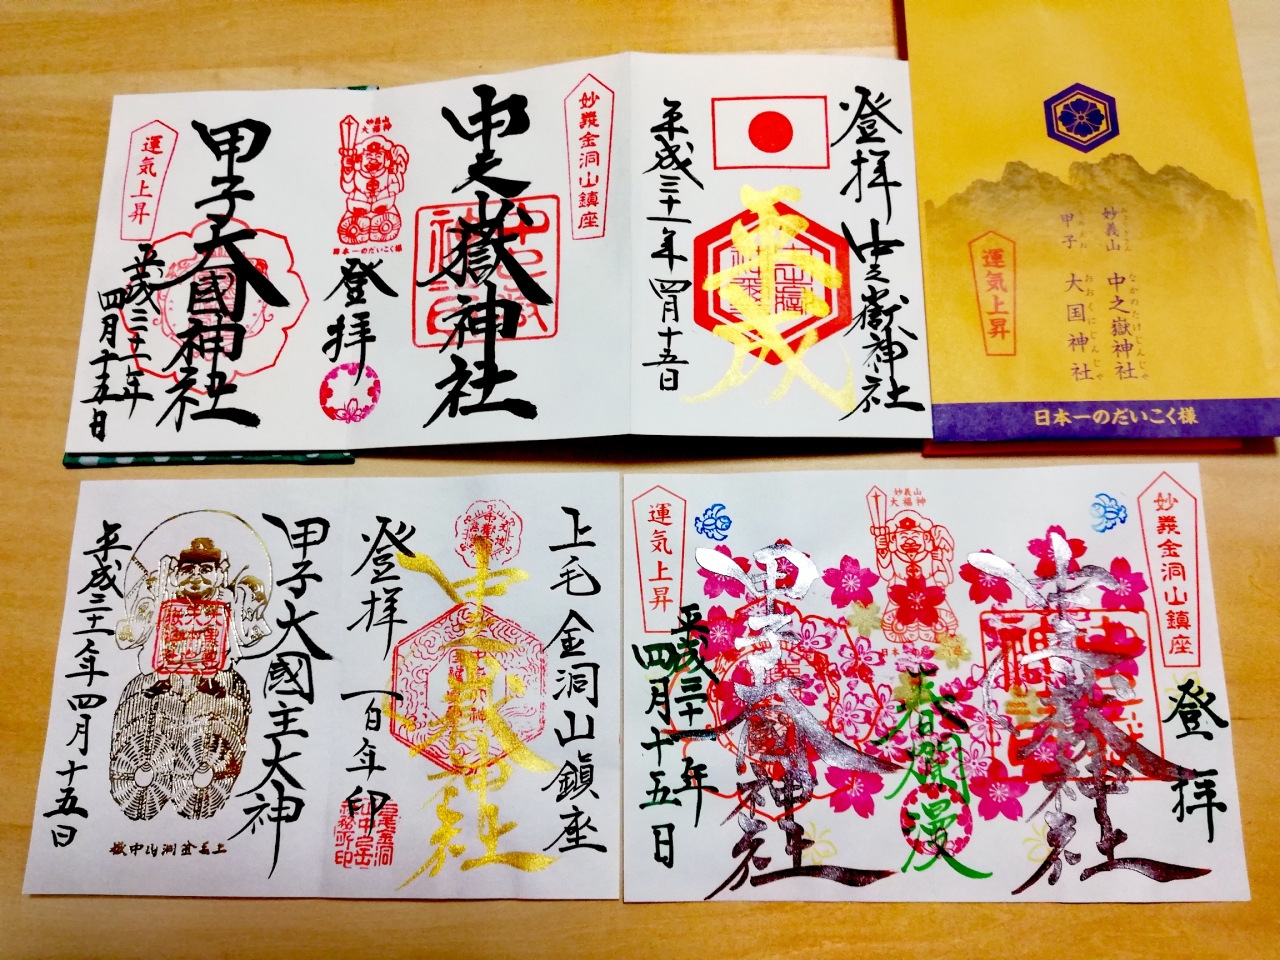 妙義金洞山鎮座
中之嶽神社
妙義山
大福神
日本一のだいこく様
登拝
甲子大國神社
運気上昇
平成三十一年
四月十五日
登拝
中之嶽神社
平成
平成三十一年四月十五日
妙義山 中之嶽神社
みょうぎさん なかのたけじんじゃ
甲子 大国神社
きのえね おおくにじんじゃ
運気上昇
日本一のだいこく様
上毛金洞山鎮座
中之嶽神社
登拝
百年印
甲子大國主大神
平成三十一年四月十五日
上毛金洞山中嶽
妙義金洞山鎮座
登拝
中之嶽神社
妙義山
大福神
春爛漫
甲子大國神社
運気上昇
平成三十一年
四月十五日